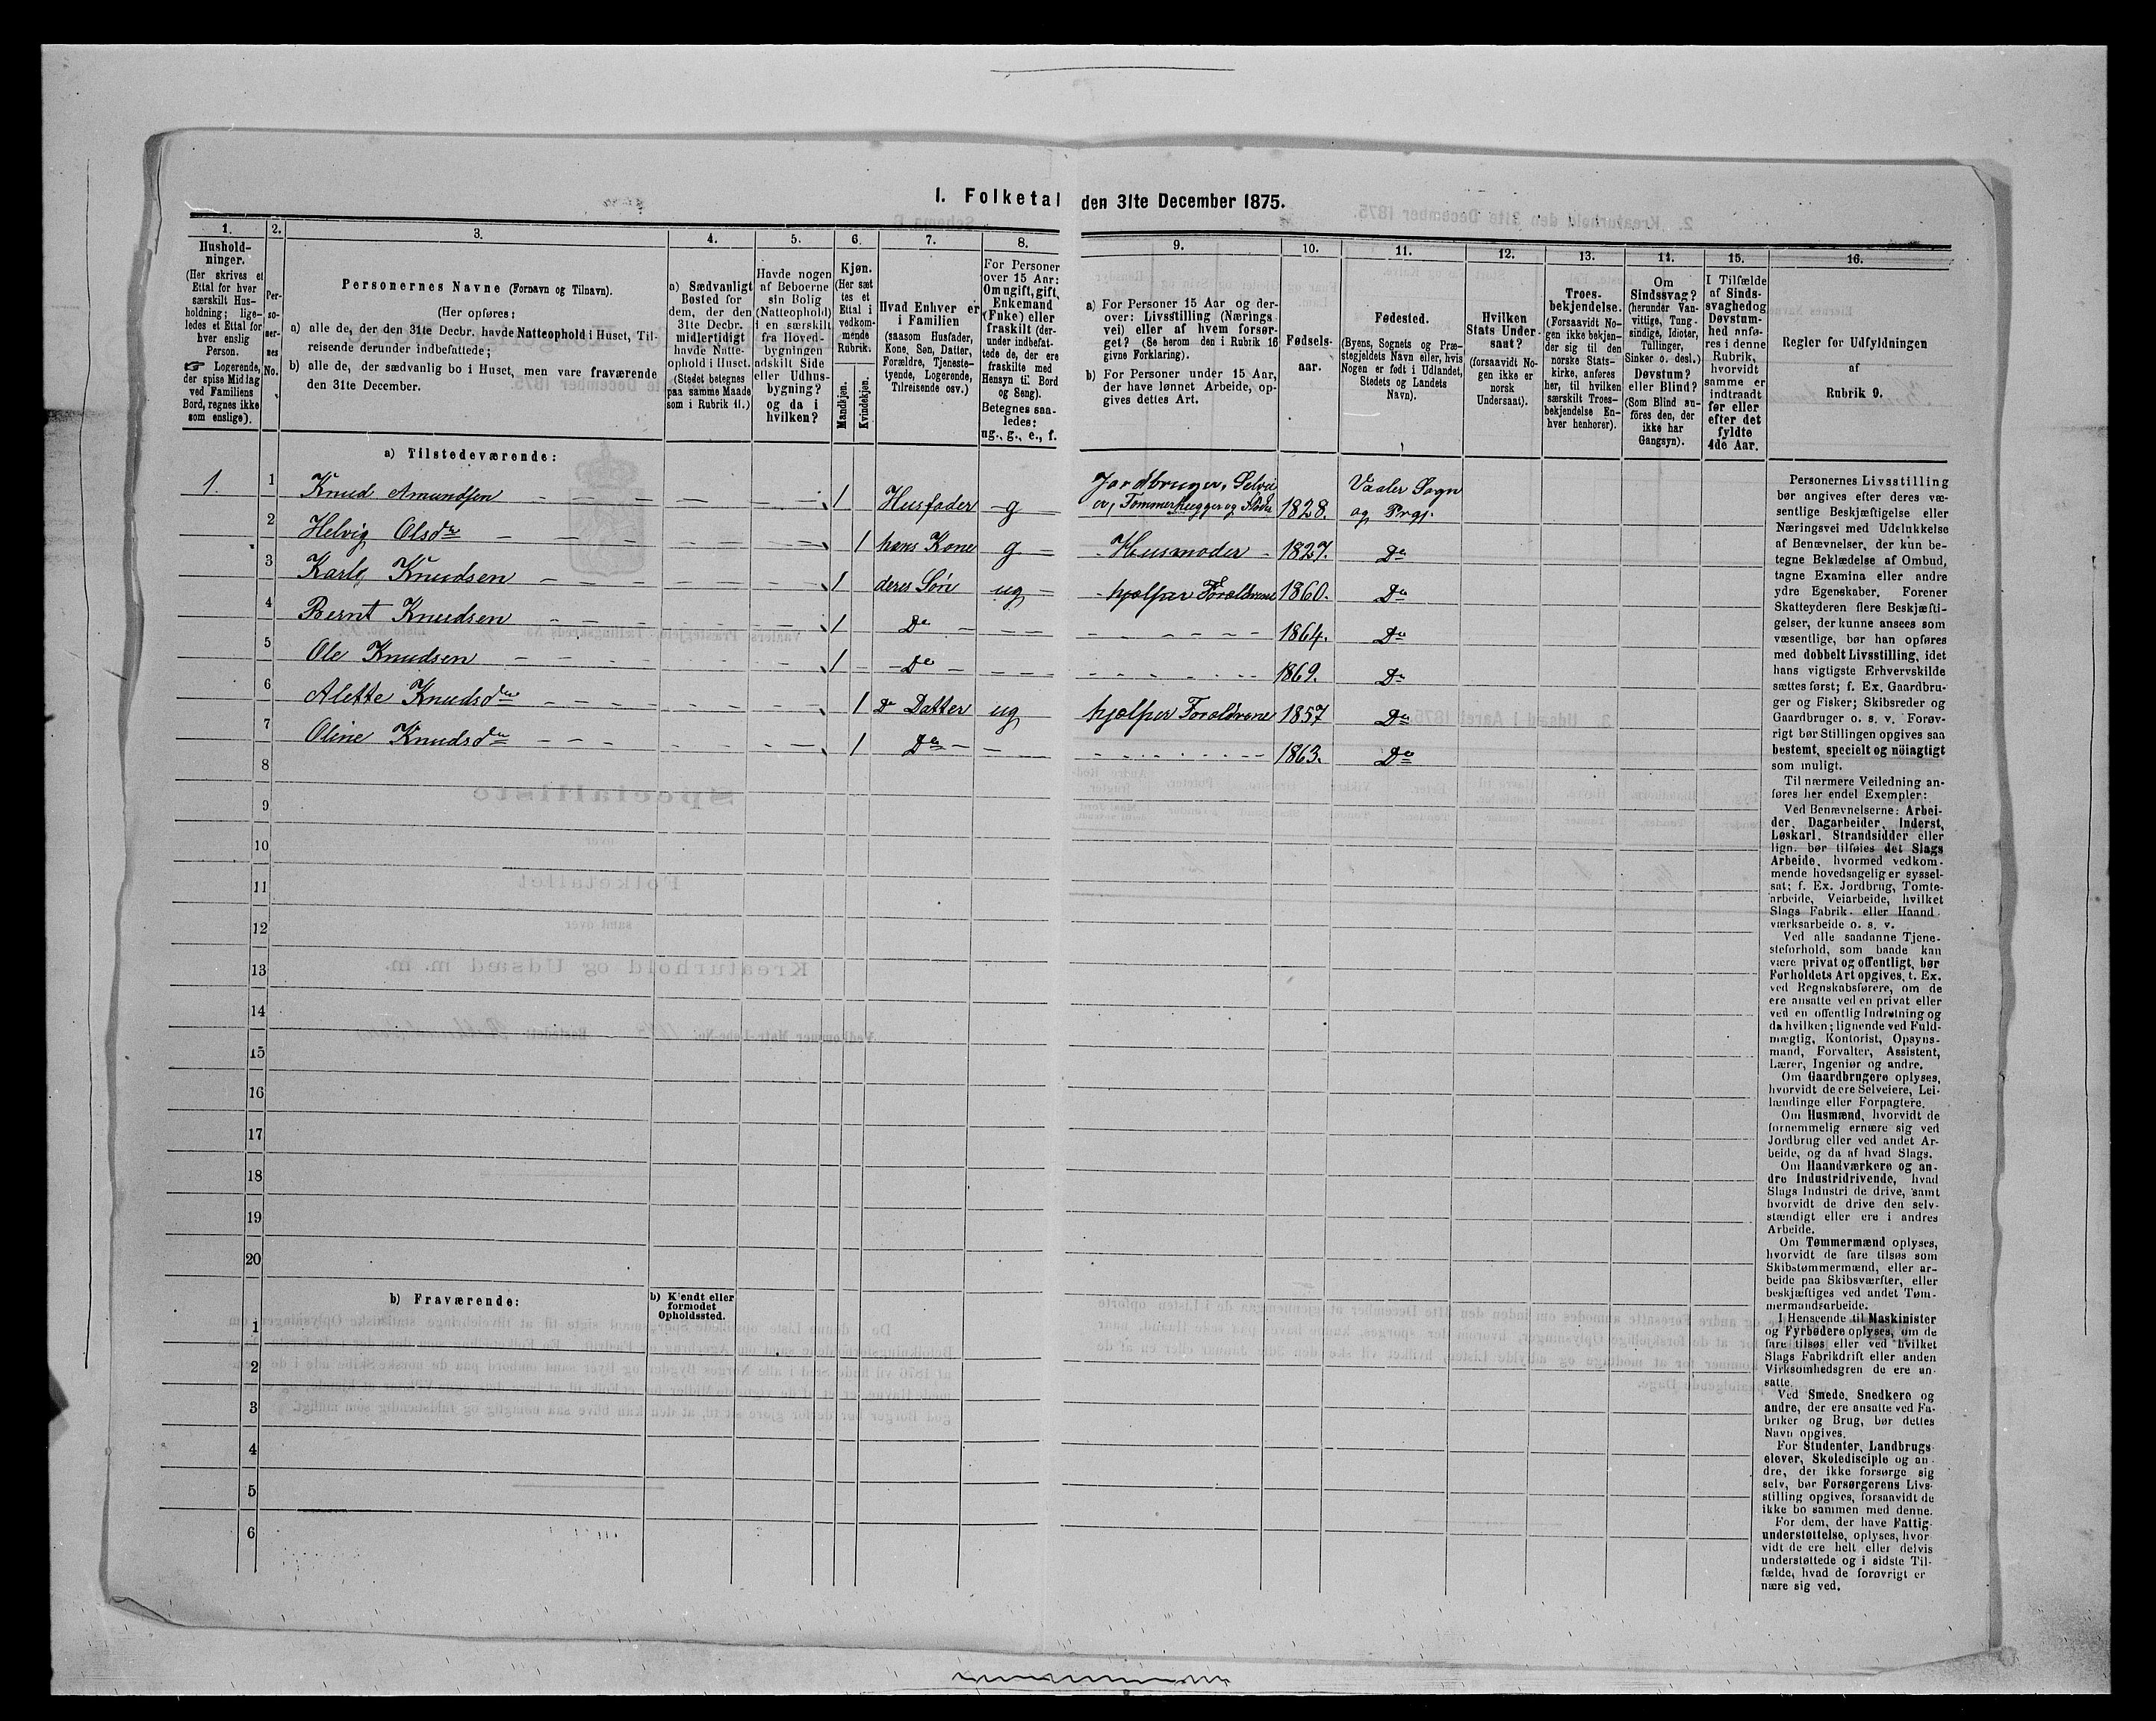 I. Folketal den 31te December 1875.
1.
Hushold-
ninger.
(Her skrives et
Ettal for hver
særskilt Hus-
holdning; lige-
ledes et Ettal for
hver enslig
Person.
☞ Logerende,
der spise Middag
ved Familiens
Bord, regnes ikke
som enslige).
2.
Per-
so-
ner-
nes
No.
3.
Personernes Navne (Fornavn og Tilnavn).
(Her opføres:
a) alle de, der den 31te Decbr. havde Natteophold i Huset, Til-
reisende derunder indbefattede;
b) alle de, der sædvanlig bo i Huset, men vare fraværende
den 31te December.
4.
a) Sædvanligt
Bosted for
dem, der den
31te Decbr.
midlertidigt
havde Natte-
ophold i Huset.
(Stedet betegnes
paa samme Maade
som i Rubrik 11.)
5.
Havde nogen
af Beboerne
sin Bolig
(Natteophold)
i en særskilt
fra Hoved-
bygningen
adskilt Side
eller Udhus-
bygning?
og da i
hvilken?
6.
Kjøn.
(Her sæt
tes et
Ettal i
vedkom-
mende
Rubrik.
Mandkjøn.
Kvindekjøn.
7.
Hvad Enhver er
i Familien
(saasom Husfader,
Kone, Søn, Datter,
Forældre, Tjeneste-
tyende, Logerende,
Tilreisende osv.)
8.
For Personer
over 15 Aar:
Om ugift, gift,
Enkemand
(Enke) eller
fraskilt (der-
under indbefat-
tede de, der ere
fraskilte med
Hensyn til Bord
og Seng).
Betegnes saa-
ledes:
ug., g., e., f.
9.
a) For Personer 15 Aar og der-
over: Livsstilling (Nærings
vei) eller af hvem forsør-
get? (Se herom den i Rubrik 16
givne Forklaring).
b) For Personer under 15 Aar,
der have lønnet Arbeide, op-
gives dettes Art.
10.
Fødsels-
aar.
11.
Fødested.
(Byens, Sognets og Præ-
stegjeldets Navn eller, hvis
Nogen er født i Udlandet,
Stedets og Landets
Navn).
12.
Hvilken
Stats Under-
saat?
(forsaavidt No-
gen ikke er
norsk
Undersaat).
13.
Troes-
bekjendelse.
(Forsaavidt No-
gen ikke bekjen-
der sig til den
norske Stats-
kirke, anføres
her, til hvilken
særskilt Troes-
bekjendelse En-
hver henhører).
14.
Om
Sindssvag?
(herunder Van-
vittige, Tung-
sindige, Idioter,
Tullinger,
Sinker o. desl.)
Døvstum?
eller Blind?
(Som Blind an-
föres den, der
ikke har
Gangsyn).
15.
I Tilfælde
af Sinds-
svaghed og
Døvstum-
hed anfø-
res i denne
Rubrik,
hvorvidt
samme er
indtraadt
før eller
efter det
fyldte
4de Aar.
16.
Regler for Udfyldningen
af
Rubrik 9.
a) Tilstedeværende:
1. 1 Knud Amundsen 1 Husfader g Jordbruger, Selvei
er, Tømmerhugger og 1828. Vaaler Sogn
og Prgj.
2 Helvig Olsdr 1 hans Kone g Husmoder 1827. Do
3 Karlo Knudsen 1 deres Søn ug hjælper Forældrene 1860. Do
4 Bernt Knudsen 1 Do 1864. Do
5 Ole Knudsen 1 Do 1869. Do
6 Alette Knudsdr 1 Do Datter ug hjælper Forældrene 1857 Do
7 Oline Knudsdr 1 Do 1863. Do
8
9
10
11
12
13
14
15
16
17
18
19
20
b) Fraværende:
b) Kjendt eller
formodet
Opholdssted.
1
2
3
4
5
6
Personernes Livsstilling
bør angives efter deres væ-
sentlige Beskjæftigelse eller
Næringsvei med Udelukkelse
af Benævnelser, der kun be-
tegne Beklædelse af Ombud,
tagne Examina eller andre
ydre Egenskaber. Forener
Skatteyderen flere Beskjæfti-
gelser, der kunne ansees som
væsentlige, bør han opføres
med dobbelt Livsstilling, idet
hans vigtigste Erhvervskilde
sættes først; f. Ex. Gaardbru-
ger og Fisker; Skibsreder og
Gaardbruger o. s. v. Forøv-
rigt bør Stillingen opgives saa
bestemt, specielt og nöiagtigt
som muligt.
Til nærmere Veiledning an-
føres her endel Exempler:
Ved Benævnelserne: Arbei-
der, Dagarbeider, Inderst,
Løskarl, Strandsidder eller
lign. bør tilføies det Slags
Arbeide, hvormed vedkom-
mende hovedsagelig er syssel-
sat; f. Ex. Jordbrug, Tomte-
arbeide, Veiarbeide, hvilket
Slags Fabrik- eller Haand-
værksarbeide o. s. v.
Ved alle saadanne Tjene-
steforhold, som baade kan
være privat og offentligt, bør
Forholdets Art opgives, t. Ex.
ved Regnskabsførere, om de
ere ansatte ved en privat eller
ved en offentlig Indretning og
da hvilken; lignende ved Fuld-
mægtig, Kontorist, Opsyns-
mand, Forvalter, Assistent,
Lærer, Ingeniør og andre.
Om Gaardbrugere oplyses,
hvorvidt de ere Selveiere, Lei-
lændinge eller Forpagtere.
Om Husmænd, hvorvidt de
fornemmelig ernære sig ved
Jordbrug eller ved andet Ar-
beide, og da af hvad Slags.
Om Haandværkere og an-
dre Industridrivende, hvad
Slags Industri de drive, samt
hvorvidt de drive den selv-
stændigt eller ere i andres
Arbeide.
Om Tømmermænd oplyses,
hvorvidt de fare tilsøs som
Skibstømmermænd, eller ar-
beide paa Skibsværfter, eller
beskjæftiges ved andet Tøm-
mermandsarbeide.
I Henseende til Maskinister
og Fyrbødere oplyses, om de
fare tilsøs eller ved hvilket
Slags Fabrikdrift eller anden
Virksomhedsgren de ere an-
satte.
Ved Smede, Snedkere og
andre, der ere ansatte ved Fa-
briker og Brug, bør dettes
Navn opgives.
For Studenter, Landbrugs-
elever, Skoledisciple og an-
dre, der ikke forsørge sig
selv, bør Forsørgerens Livs-
stilling opgives, forsaavidt de
ikke bo sammen med denne.
For dem, der have Fattig-
understøttelse, oplyses, hvor-
vidt de ere helt eller delvis
understøttede og i sidste Til-
fælde, hvad de forøvrigt er
nære sig ved.